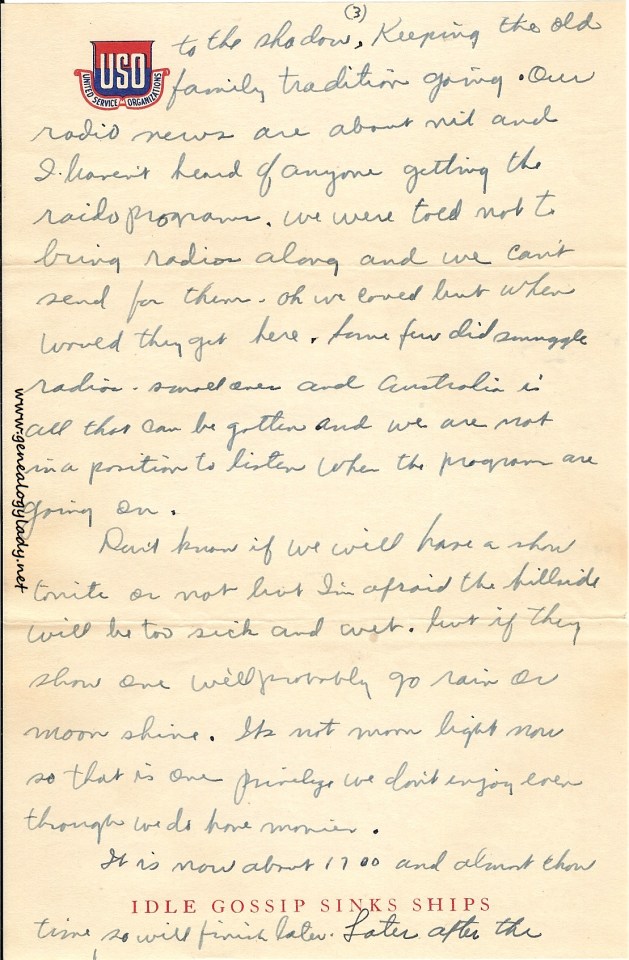 (3)
USO
UNITED SERVICE ORGANIZATIONS
to the shadow. Keeping the old
family tradition going. Our
radio news are about nil and
I haven't heard of anyone getting the
raido programs. We were told not to
bring radios along and we can't
send for them. Oh we coued but when
woued they get here. Some few did smuggle
radios - small ones and Australia is
all that can be gotten and we are not
in a position to listen when the program are
going on.
Don't know if we will have a show
tonite or not but I'm afraid the hillside
will be too sick and wet. but if they
show one we'll probably go rain or
moon shine. Its not moon light now
so that is one privelige we don't enjoy even
though we do have movies.
It is now about 1700 and almost chow
IDLE GOSSIP SINKS SHIPS
time, so will finish later. Later after the
www.genealogylady.net